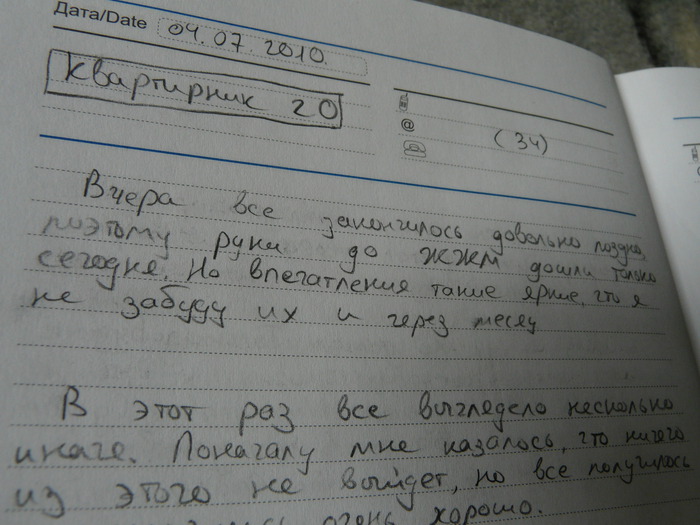 Дата/Date 04.07.2010.
Квартирник 20
@
(34)
Вчера все закончилось довольно поздно,
поэтому руки до ЖЖМ дошли только
сегодня. Но впечатления такие яркие, что я
не забуду их и через месяц
В этот раз все выглядело несколько
иначе. Поначалу мне казалось, что ничего
из этого не выйдет, но все получилось
очень хорошо.